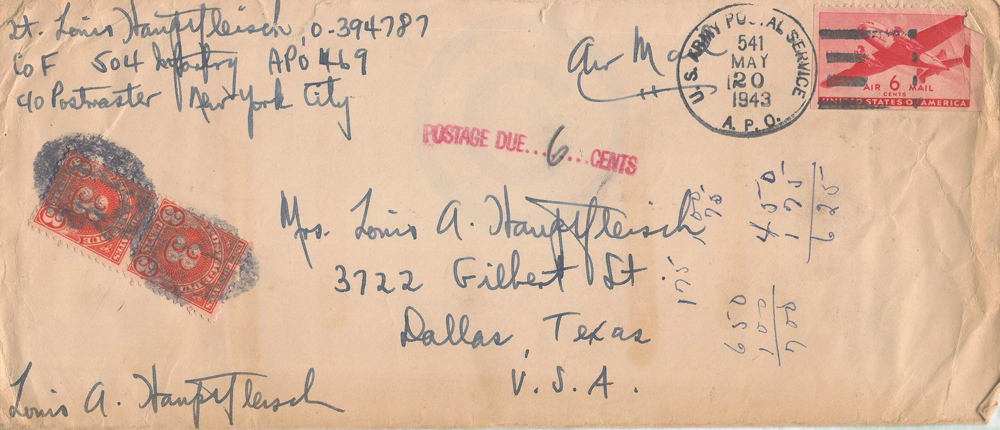 Lt. Louis Hauptfleisch, O-394787
Co F 504 Infantry APO 469
℅ Postmaster New York City
Air Mail
U.S. ARMY POSTAL SERVICE
541
MAY
20
1943
A. P. O.
AIR 6 MAIL
CENTS
UNITED STATES OF AMERICA
POSTAGE DUE...6...CENTS
3
3
Mrs. Louis A. Hauptfleisch
3722 Gilbert St
Dallas, Texas
U.S.A.
Louis A. Hauptfleisch
100
75
175
450
175
625
650
100
700